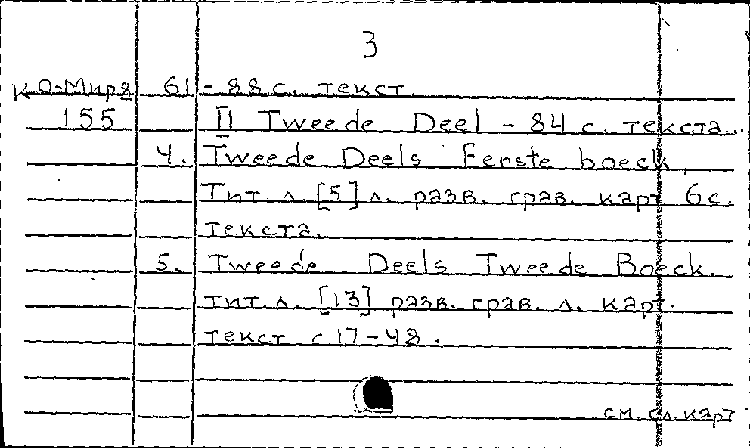 3
К О-Мира 61 - 88 с. текст.
155 II Tweede Deel - 84 с. текста.
4. Tweede Deels Eerste boeck,
Тит л. [5] л. разв. грав. карт 6 с.
текста.
5. Tweede Deels Tweede Boeck.
тит. л. [13] разв. грав. л. карт.
текст с 17 - 48.
см. сл. карт